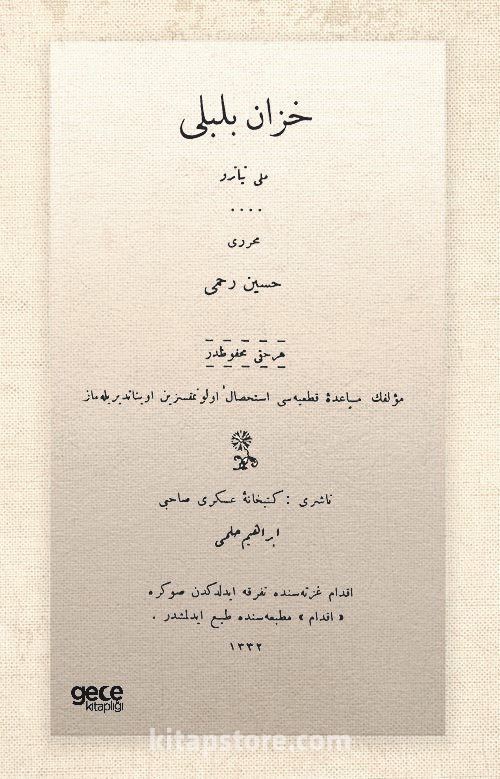 خزان بلبلی
ملی تیاترو
....
محرری
حسین رحمی
هر حقی محفوظدر
مؤلفك مساعدۀ قطعیه‌سی استحصال اولونمقسزین اویناندیریله‌ماز
ناشری : كتبخانۀ عسكری صاحبی
ابراهیم حلمی
اقدام غزته‌سنده تفرقه ایدلدكدن صوكره
« اقدام » مطبعه‌سنده طبع ایدلمشدر .
١٣٣٢
gece
kitaplığı
kitapstore.com